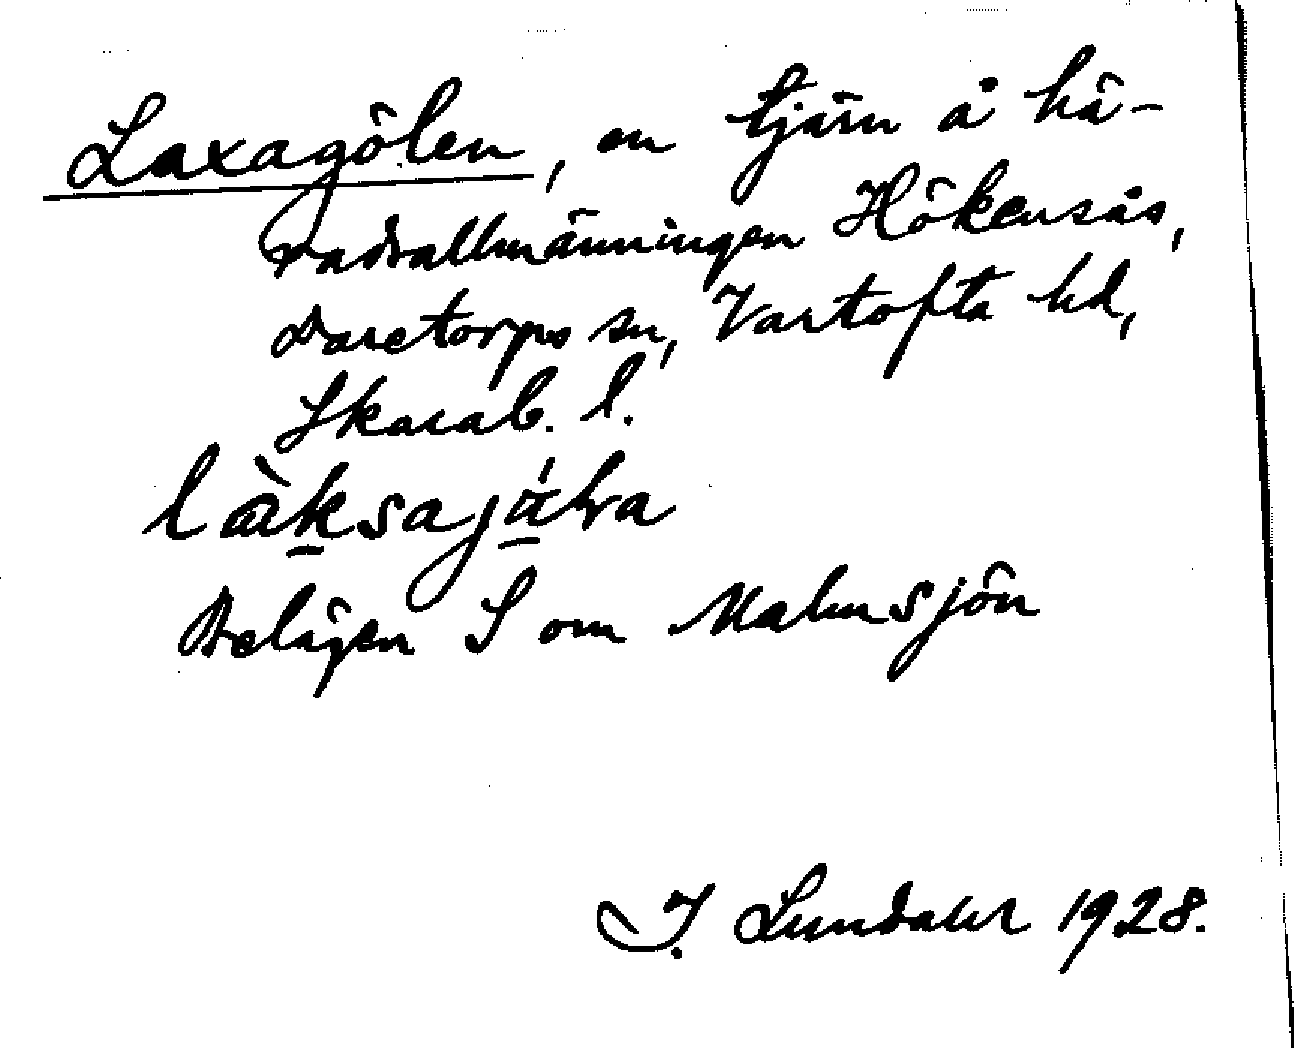 Laxagölen, en tjärn å hä-
radsallmänningen Hökensås,
Daretorps sn, Vartofta hd,
Skarab. l.
Belägen S om Malmsjön
I. Lundahl 1928.